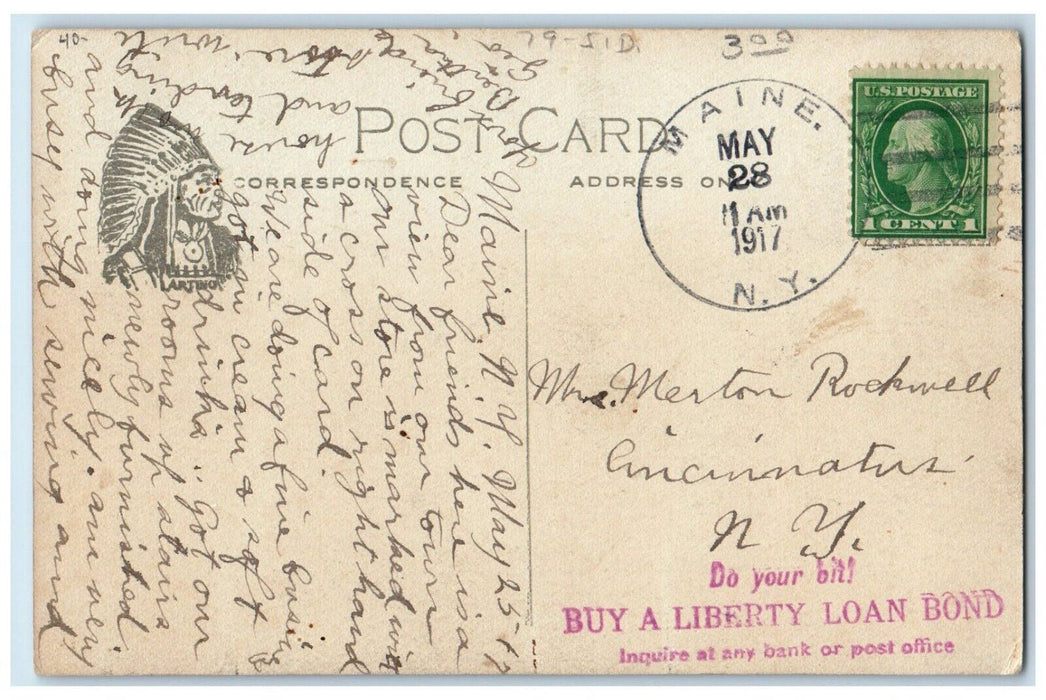 40-
79-51D.
3 00
POST CARD
CORRESPONDENCE
ADDRESS ON
MAINE.
MAY
28
11 AM
1917
N.Y.
U.S. POSTAGE
1 CENT 1
ARTINO
Maine, N. Y. May 25-17
Dear friends here is a
view from our town
our store is marked with
a cross on right hand
side of card.
We are doing a fine busi
got in cream & soft
drinks. Got our
rooms up stairs
newly furnished
and doing nicely. am very
busy with sewing and
house
and tending
store. write
Mrs. Merton Rockwell
Cincinnatus
N. Y.
Do your bit!
BUY A LIBERTY LOAN BOND
Inquire at any bank or post office